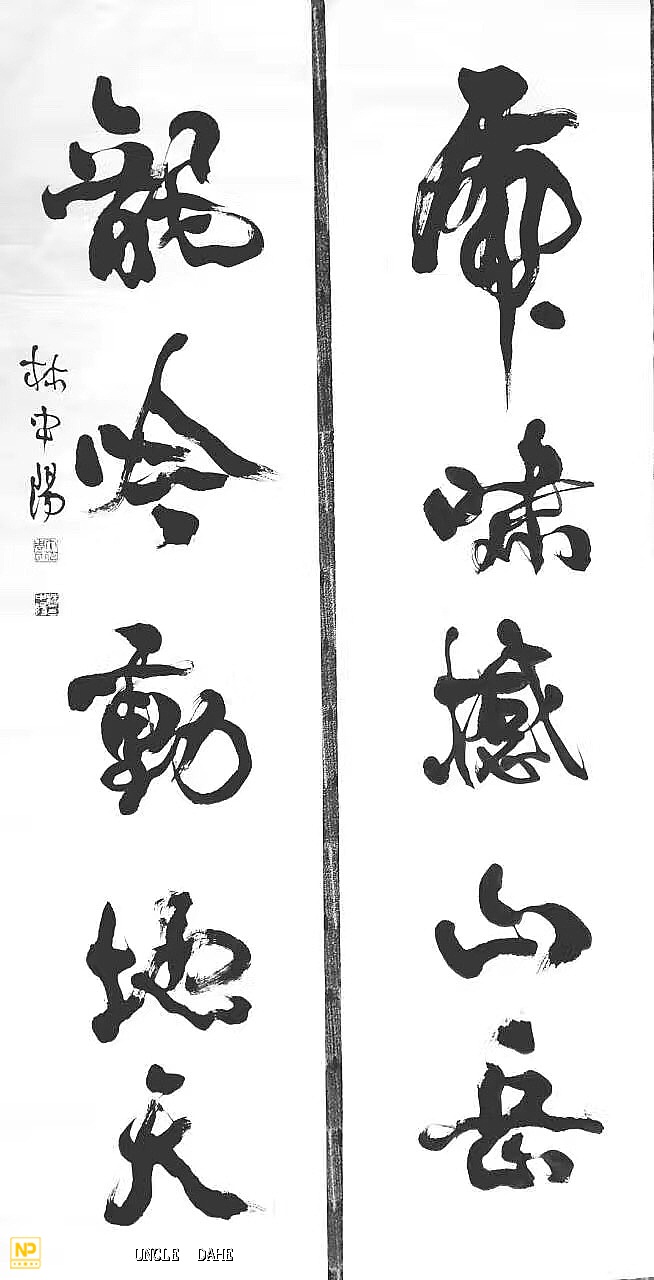 虎啸撼山岳
龍吟動地天
林中陽
NP
UNCLE DAHE